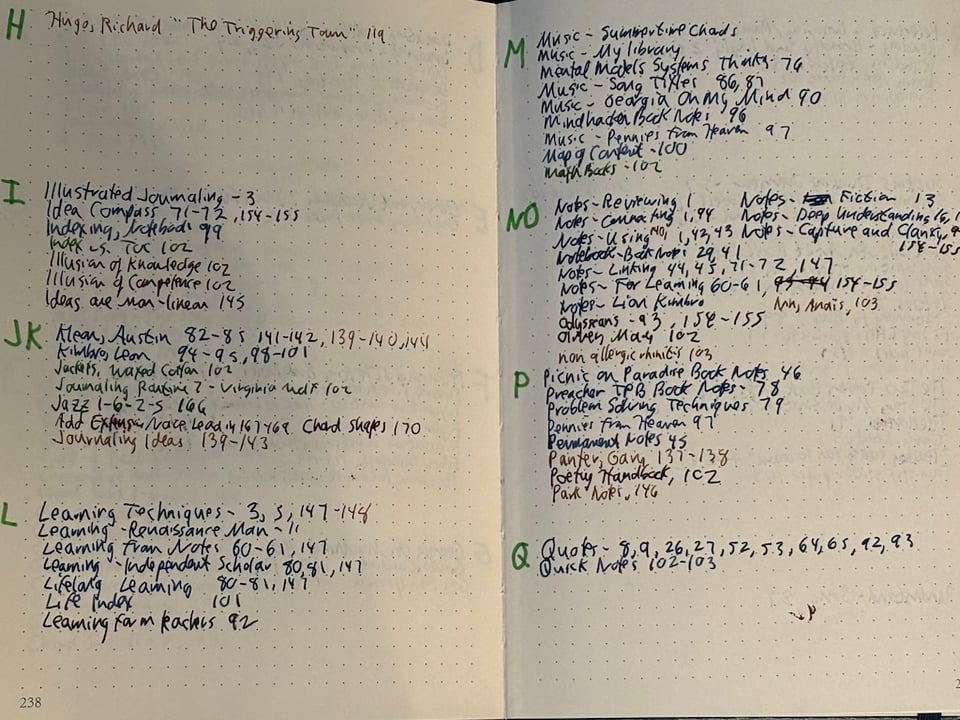 H Hugo, Richard "The Triggering Town" 119
I Illustrated Journaling - 3
Idea Compass 71-72, 154-155
Indexing, Notebooks 99
Index vs. TOC 102
Illusion of Knowledge 102
Illusion of Competence 102
Ideas are Non-linear 145
JK Kleon, Austin 82-85 141-142, 139-140, 144
Kimbro, Leon 94-95, 98-101
Jackets, Waxed Cotton 102
Journaling Routine ? - Virginia Wolf 102
Jazz 1-6-2-5 166
Add Extensions Voice Leading 167-169 Chord Shapes 170
Journaling Ideas 139-143
L Learning Techniques - 3, 5, 147-148
Learning - Renaissance Man - 11
Learning from Notes 60-61, 147
Learning - Independent Scholar 80,81, 147
Lifelong Learning 80-81, 147
Life Index 101
Learning from teachers 92
238
M Music - Summertime Chords
Music - My library
Mental Models Systems Thinking 76
Music - Song Titles 86, 87
Music - Georgia On My Mind 90
Mindhacker Book Notes 96
Music - Pennies from Heaven 97
Map of Content - 100
Math Books - 102
NO Notes - Reviewing 1 Notes - Fiction 13
Notes - Connecting 1, 94 Notes - Deep Understanding 16, 1
Notes - Using 1, 42, 43 Notes - Capture and Clarity, 9
Notebook - Book Notes 29, 41 154-155
Notes - Linking 44, 45, 71-72, 147
Notes - For Learning 60-61, 154-155
Notes - Lion Kimbro Nin, Anais, 103
Odysseans - 93, 154-155
Oliver, Mary 102
non allergic rhinitis 103
P Picnic on Paradise Book Notes 46
Preacher TPB Book Notes - 78
Problem Solving Techniques 79
Pennies from Heaven 97
Permanent Notes 45
Panter, Gary 137-138
Poetry Handbook, 102
Park Notes, 146
Q Quotes - 8, 9, 26, 27, 52, 53, 64, 65, 92, 93
Quick Notes 102-103
2